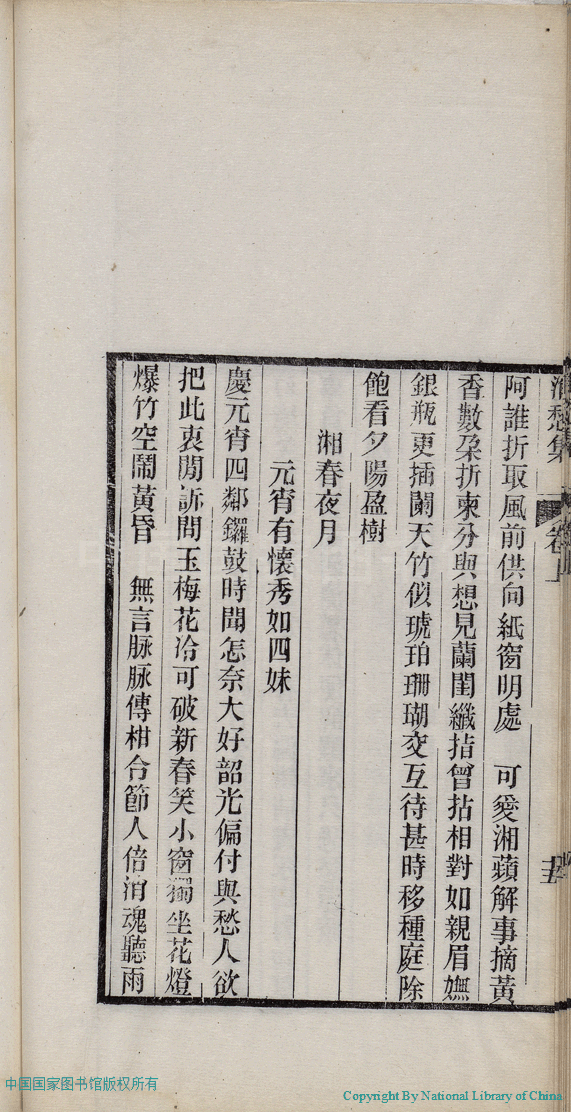 消愁集 卷上 十五
阿誰折取風前供向紙窗明處 可愛湘蘋解事摘黃
香數朶折柬分與想見蘭閨纖拮曾拈相對如親眉嫵
銀瓶更插闌天竹似琥珀珊瑚交互待甚時移種庭除
飽看夕陽盈樹
湘春夜月
元宵有懷秀如四妹
慶元宵四鄰鑼鼓時聞怎奈大好韶光偏付與愁人欲
把此衷閒訴問玉梅花冷可破新春笑小窗獨坐花燈
爆竹空鬧黃昏 無言脉脉傳柑令節人倍消魂聽雨
中国国家图书馆版权所有
Copyright By National Library of China